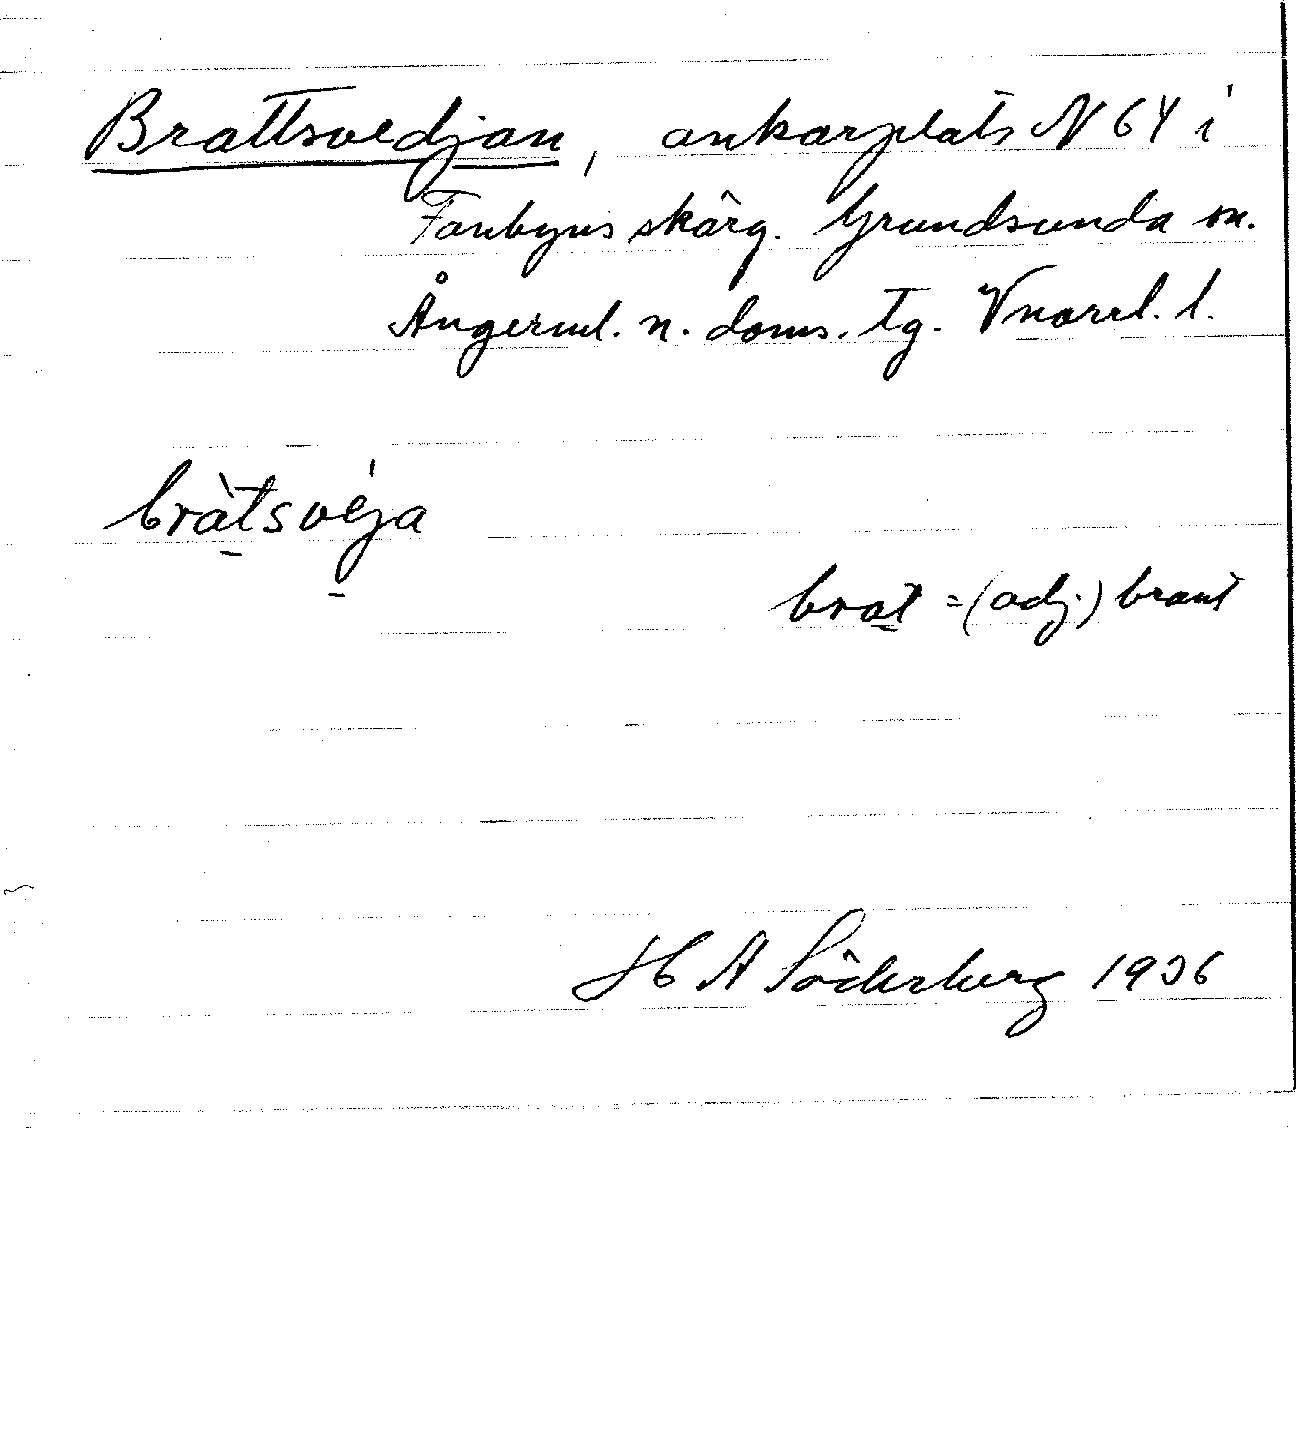 Brattsvedjan, ankarplats N 64 i
Fanbyns skärg. Grundsunda sn.
Ångerml. n. doms. tg. Vnorrl. l.
bràtsvéja
brat = (adj.) brant
H A Söderberg 1936